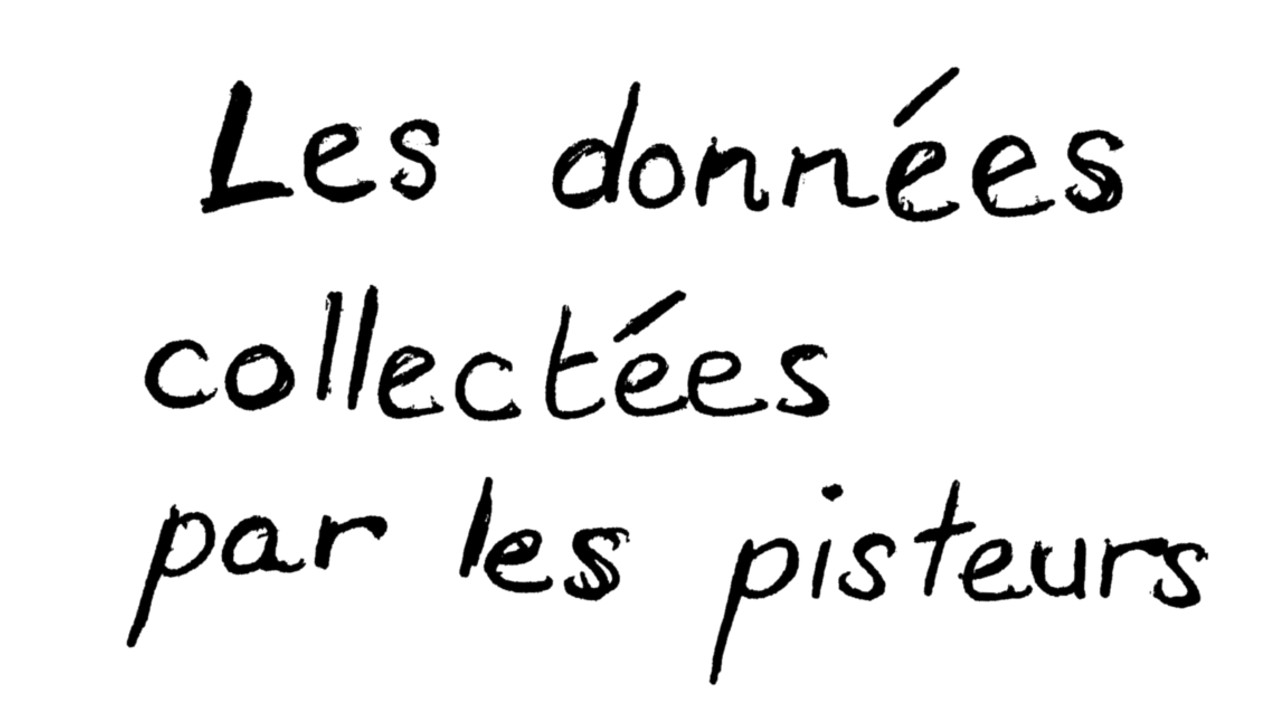 Les données
collectées
par les pisteurs